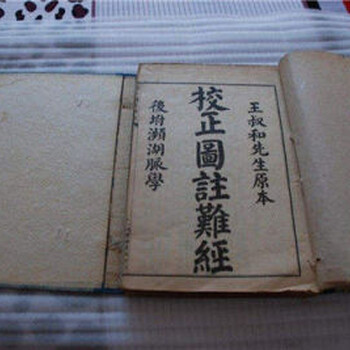 王叔和先生原本
校正圖註難經
後附瀕湖脈學